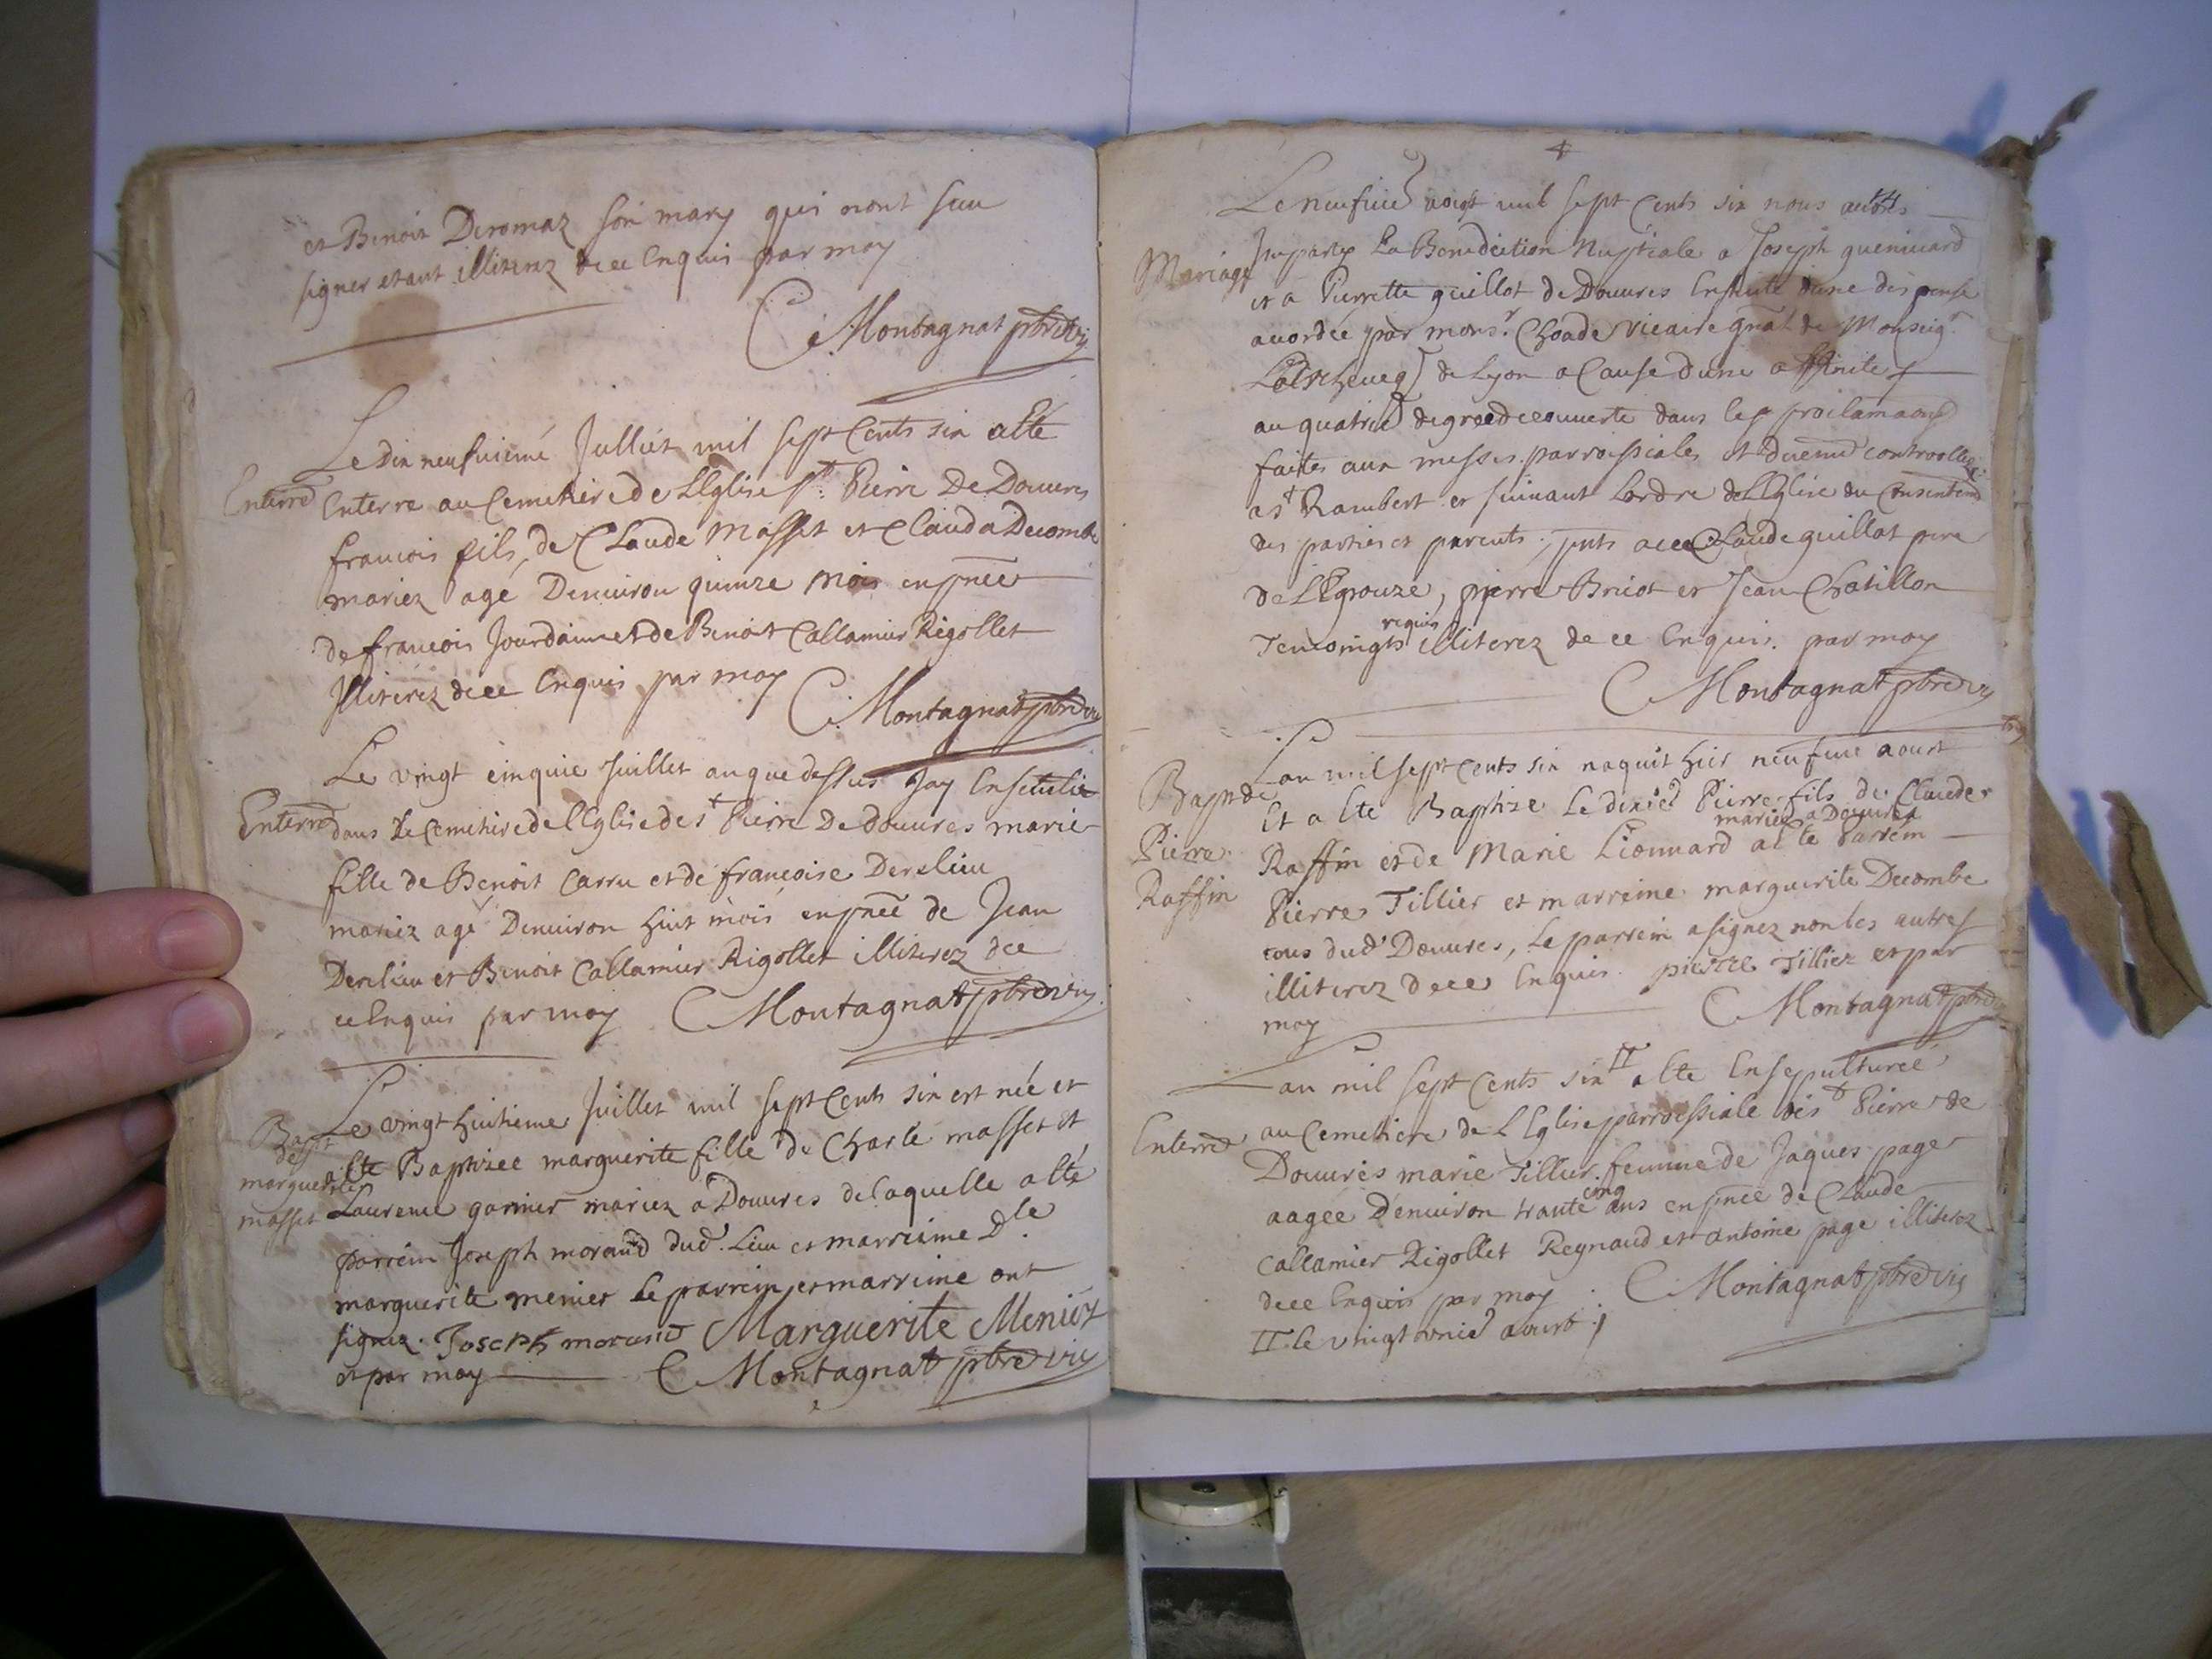 et Benoit Deromaz son mary qui nont sceu
signer etant illiterez de ce enquis par moy
C Montagnat pbre vic
Le dix neufuiemé Julliet mil sept cents six a eté
Enterré
enterre au Cemetiere de LEglise st. Pierre De Douures
francois fils de Claude Masset et Clauda Decombe
mariez agé Denuiron quinze mois en pnce
de francois Jourdain et de Benoit Callamier Rigollet
Illiterez de ce enquis par moy
C Montagnat pbre vic
Le vingt cinquie Juillet an que dessus Jay Enseueli
Enterré
dans Le Cemetire de lEglise de st Pierre De douures marie
fille de Benoit Carru et de francoise Derelieu
mariez agé Denuiron huit mois en pnce de Jean
Derelieu et Benoit Callamier Rigollet illiterez de
ce Enquis par moy C Montagnat pbre vic
Le vingt huitieme Juillet mil sept Cents six est née et
Bapt
de
marguerite
masset
eté Baptizee marguerite fille de Charle masset et
Laurence garnier mariez a Douures de laquelle a eté
parrein Joseph moraud dud. Lieu et marreine Dle
marguerite menier Le parrein et marreine ont
signez. Joseph moraud Marguerite Meniér
et par moy C Montagnat pbre vic
4
Le neufuie aoust mil sept Cents six nous auons
Mariage
Imparty La Benediction Nuptiale a Joseph guenuard
et a Pierrette guillot de Douures Ensuite d'une dispense
accordée par monsr. Choade Vicaire gnal de Monseigr
LArcheueq de Lyon a Cause dune affinite
au quatrie degree decouuerte dans les proclamaons
faites aux messes parroissiales et duemt controollee
a st Rambert et suiuant Lordre de LEglise du Consentemt
des parties et parents, pnts auec Claude guillot pere
de LEpouze, pierre Briot et Jean Chatillon
requis
Temoingts illiterez de ce Enquis. par moy
C Montagnat pbre vic
Lan mil sept Cents six naquit hier neufuie aoust
Bap de
Pierre
Raffin
Et a Eté Baptize Le dixie Pierre fils de Claude
mariez a Douures
Raffin et de Marie Lionnard a eté Parrein
Pierre Tillier et marreine marguerite Decombe
tous dud Douures, Le parrein a signez non les autres
illiterez de ce Enquis. pierre Tillier et par
moy C Montagnat pbre
Lan mil sept Cents six II a Eté Ensepulturée
Enterré
au Cemetiere de LEglise parroissiale de st Pierre de
Douures marie Tillier femme de Jaques page
cinq
aagée Denuiron trante ans en pnce de Claude
Callamier Rigollet Reynaud et antoine page illiterez
de ce Enquis par moy C Montagnat pbre vic
II le vingt vnie aoust